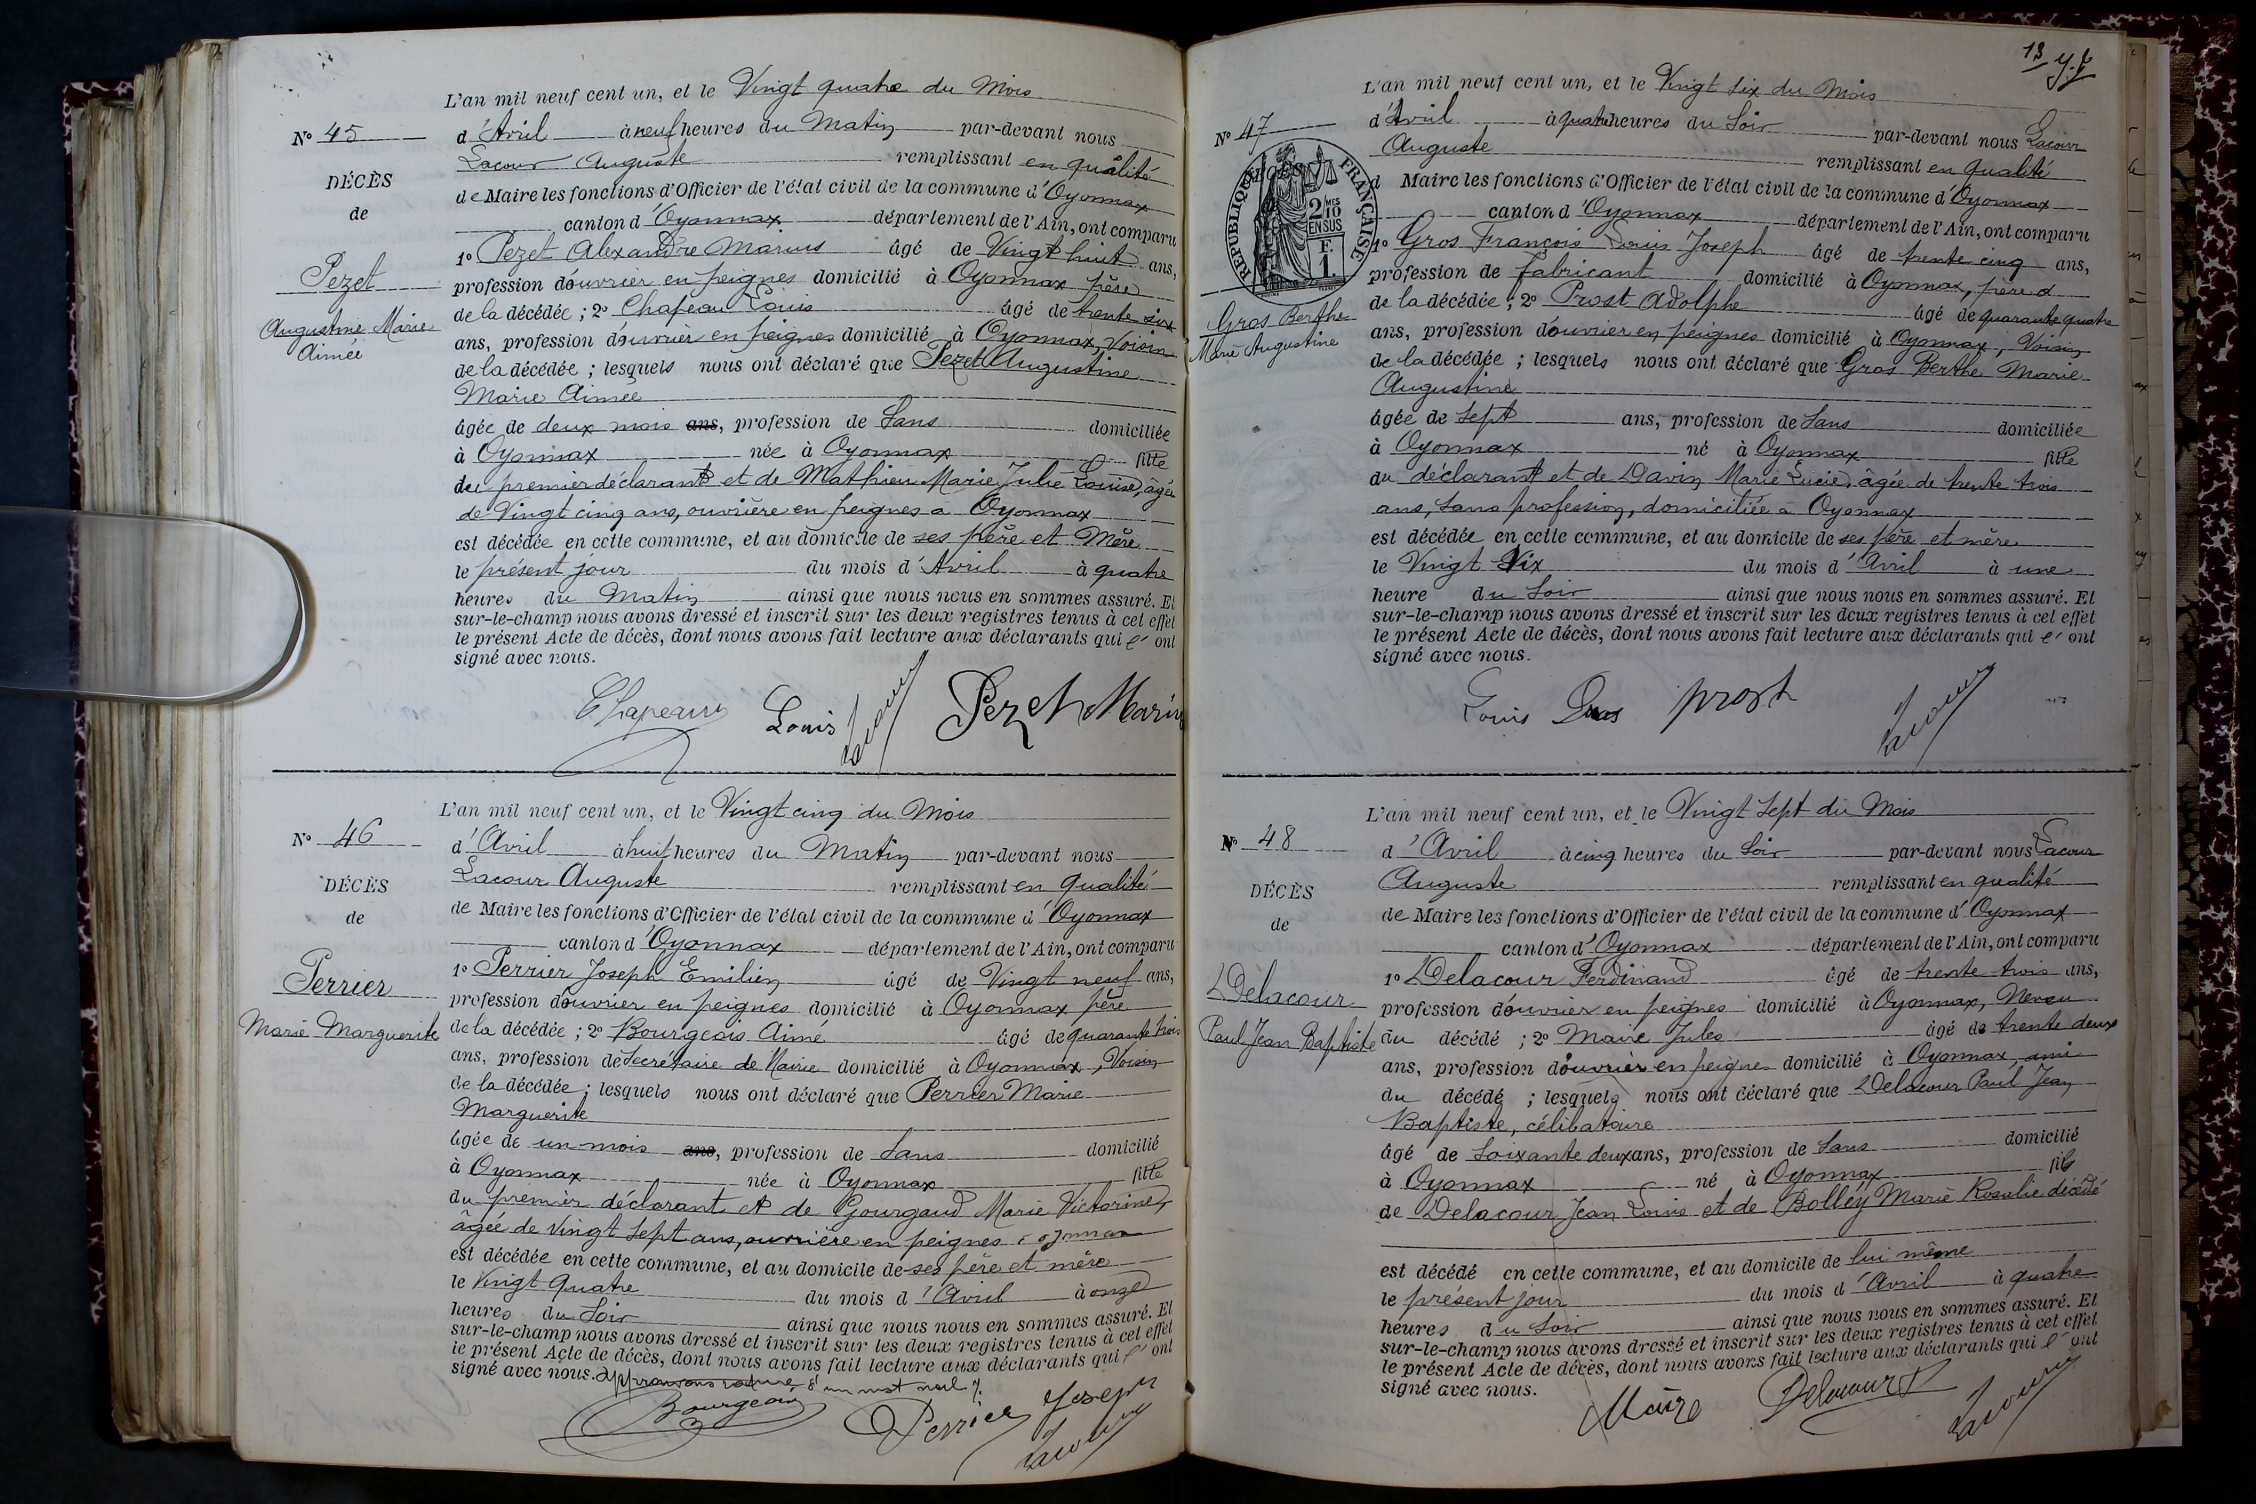 L'an mil neuf cent un, et le Vingt quatre du Mois
N° 45
d'Avril à neuf heures du Matin par-devant nous
Lacour Auguste remplissant en qualité
DÉCÈS
de Maire les fonctions d'Officier de l'état civil de la commune d'Oyonnax
de
canton d'Oyonnax département de l'Ain, ont comparu
1° Pezet Alexandre Marius âgé de Vingt huit ans,
Pezet
profession d'ouvrier en peignes domicilié à Oyonnax père
de la décédée ; 2° Chapeau Louis âgé de trente six
Augustine Marie
Aimée
ans, profession d'ouvrier en peignes domicilié à Oyonnax, Voisin
de la décédée ; lesquels nous ont déclaré que Pezet Augustine
Marie Aimée
âgée de deux mois ans, profession de Sans domiciliée
à Oyonnax née à Oyonnax fille
du premier déclarant et de Mathieu Marie Julie Louise, âgée
de Vingt cinq ans, ouvrière en peignes a Oyonnax
est décédée en cette commune, et au domicile de ses père et Mère
le présent jour du mois d'Avril à quatre
heures du Matin ainsi que nous nous en sommes assuré. Et
sur-le-champ nous avons dressé et inscrit sur les deux registres tenus à cet effet
le présent Acte de décès, dont nous avons fait lecture aux déclarants qui l' ont
signé avec nous.
Chapeau Louis Lacour Pezet Marius
L'an mil neuf cent un, et le Vingt cinq du Mois
N° 46
d'Avril à huit heures du Matin par-devant nous
Lacour Auguste remplissant en qualité
DÉCÈS
de Maire les fonctions d'Officier de l'état civil de la commune d'Oyonnax
de
canton d'Oyonnax département de l'Ain, ont comparu
1° Perrier Joseph Emilien âgé de Vingt neuf ans,
Perrier
profession d'ouvrier en peignes domicilié à Oyonnax père
Marie Marguerite
de la décédée ; 2° Bourgeois Aimé âgé de quarante trois
ans, profession de Secrétaire de Mairie domicilié à Oyonnax, Voisin
de la décédée ; lesquels nous ont déclaré que Perrier Marie
Marguerite
âgée de un mois ans, profession de Sans domicilié
à Oyonnax née à Oyonnax fille
du premier déclarant et de Gourgaud Marie Victorine,
âgée de Vingt Sept ans, ouvrière en peignes a Oyonnax
est décédée en cette commune, et au domicile de ses père et mère
le Vingt quatre du mois d'Avril à onze
heures du Soir ainsi que nous nous en sommes assuré. Et
sur-le-champ nous avons dressé et inscrit sur les deux registres tenus à cet effet
le présent Acte de décès, dont nous avons fait lecture aux déclarants qui l' ont
signé avec nous. approuvons rature d'un mot nul
Bourgeois Perrier Joseph Lacour
13
L'an mil neuf cent un, et le Vingt six du Mois
N° 47
d'Avril à quatre heures du Soir par-devant nous Lacour
Auguste remplissant en qualité
d Maire les fonctions d'Officier de l'état civil de la commune d'Oyonnax
RÉPUBLIQUE FRANÇAISE
2/10 EN SUS
F. 1.
canton d'Oyonnax département de l'Ain, ont comparu
1° Gros François Louis Joseph âgé de trente cinq ans,
profession de fabricant domicilié à Oyonnax, père d
de la décédée ; 2° Prost Adolphe âgé de quarante quatre
Gros Berthe
Marie Augustine
ans, profession d'ouvrier en peignes domicilié à Oyonnax, Voisin
de la décédée ; lesquels nous ont déclaré que Gros Berthe Marie
Augustine
âgée de Sept ans, profession de Sans domiciliée
à Oyonnax né à Oyonnax fille
du déclarant et de Davin Marie Lucie, âgée de trente trois
ans, Sans profession, domiciliée a Oyonnax
est décédée en cette commune, et au domicile de ses père et mère
le Vingt Six du mois d'Avril à une
heure du Soir ainsi que nous nous en sommes assuré. Et
sur-le-champ nous avons dressé et inscrit sur les deux registres tenus à cet effet
le présent Acte de décès, dont nous avons fait lecture aux déclarants qui l' ont
signé avec nous.
Louis Gros prost Lacour
L'an mil neuf cent un, et le Vingt Sept du Mois
N° 48
d'Avril à cinq heures du Soir par-devant nous Lacour
Auguste remplissant en qualité
DÉCÈS
de Maire les fonctions d'Officier de l'état civil de la commune d'Oyonnax
de
canton d'Oyonnax département de l'Ain, ont comparu
1° Delacour Ferdinand âgé de trente trois ans,
Delacour
profession d'ouvrier en peignes domicilié à Oyonnax, Neveu
Paul Jean Baptiste
du décédé ; 2° Maire Jules âgé de trente deux
ans, profession d'ouvrier en peignes domicilié à Oyonnax, ami
du décédé ; lesquels nous ont déclaré que Delacour Paul Jean
Baptiste, célibataire
âgé de Soixante deux ans, profession de Sans domicilié
à Oyonnax né à Oyonnax fils
de Delacour Jean Louis et de Bolley Marie Rosalie décédé
est décédé en cette commune, et au domicile de lui même
le présent jour du mois d'Avril à quatre
heures du Soir ainsi que nous nous en sommes assuré. Et
sur-le-champ nous avons dressé et inscrit sur les deux registres tenus à cet effet
le présent Acte de décès, dont nous avons fait lecture aux déclarants qui l' ont
signé avec nous.
Maire Delacour F Lacour